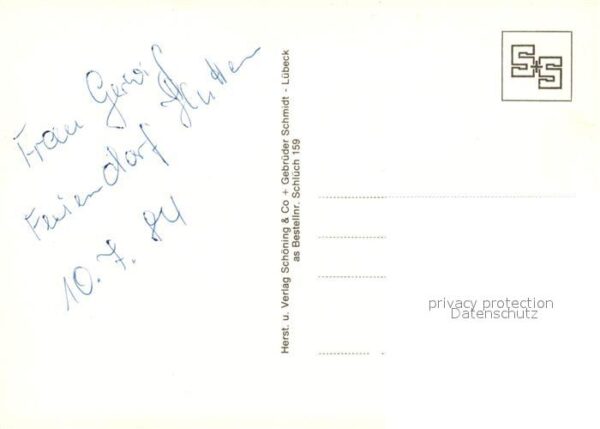 Frau
Feriendorf Hutten
10.7.84
Herst. u. Verlag Schöning & Co + Gebrüder Schmidt - Lübeck
as Bestellnr. Schlüch 159
S+S
privacy protection
Datenschutz